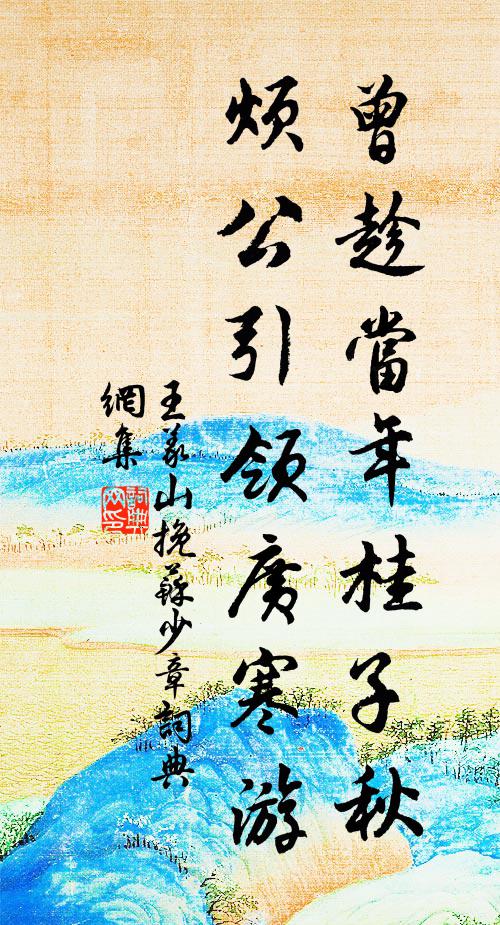 曾趁當年桂子秋
煩公引領廣寒游
王义山挽蘇少章詞典
網集
詞典網印